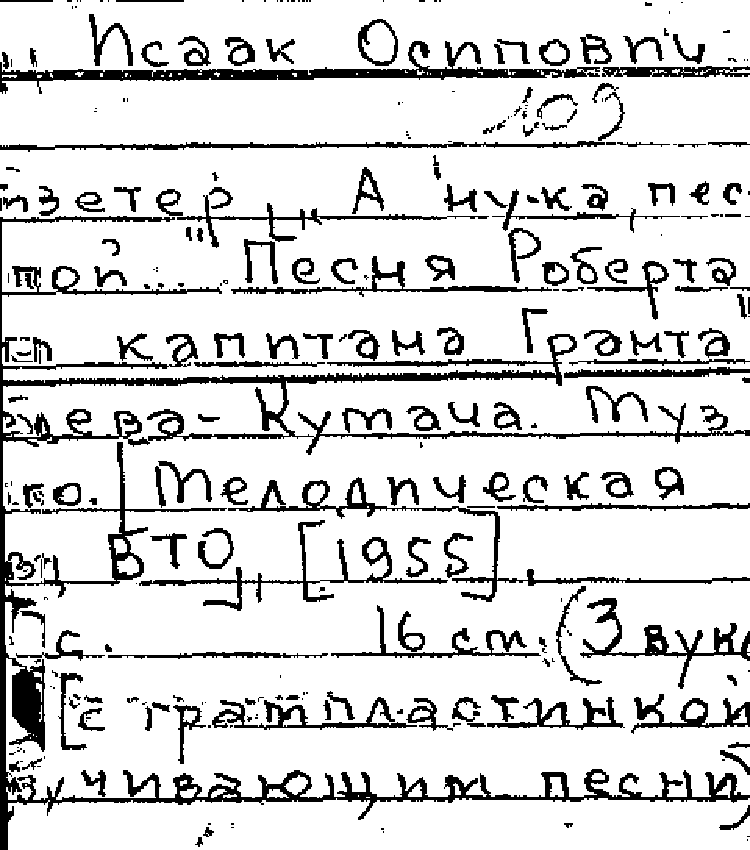 Исаак Осипови
109
йзетер, „А ну-ка, пес
той... Песня Роберта
капитана Гранта"
Кумача. Муз
Мелодическая
ВТО], [1955].
с. 16 см. (Звук
[с грампластинкой
зучивающим песни)